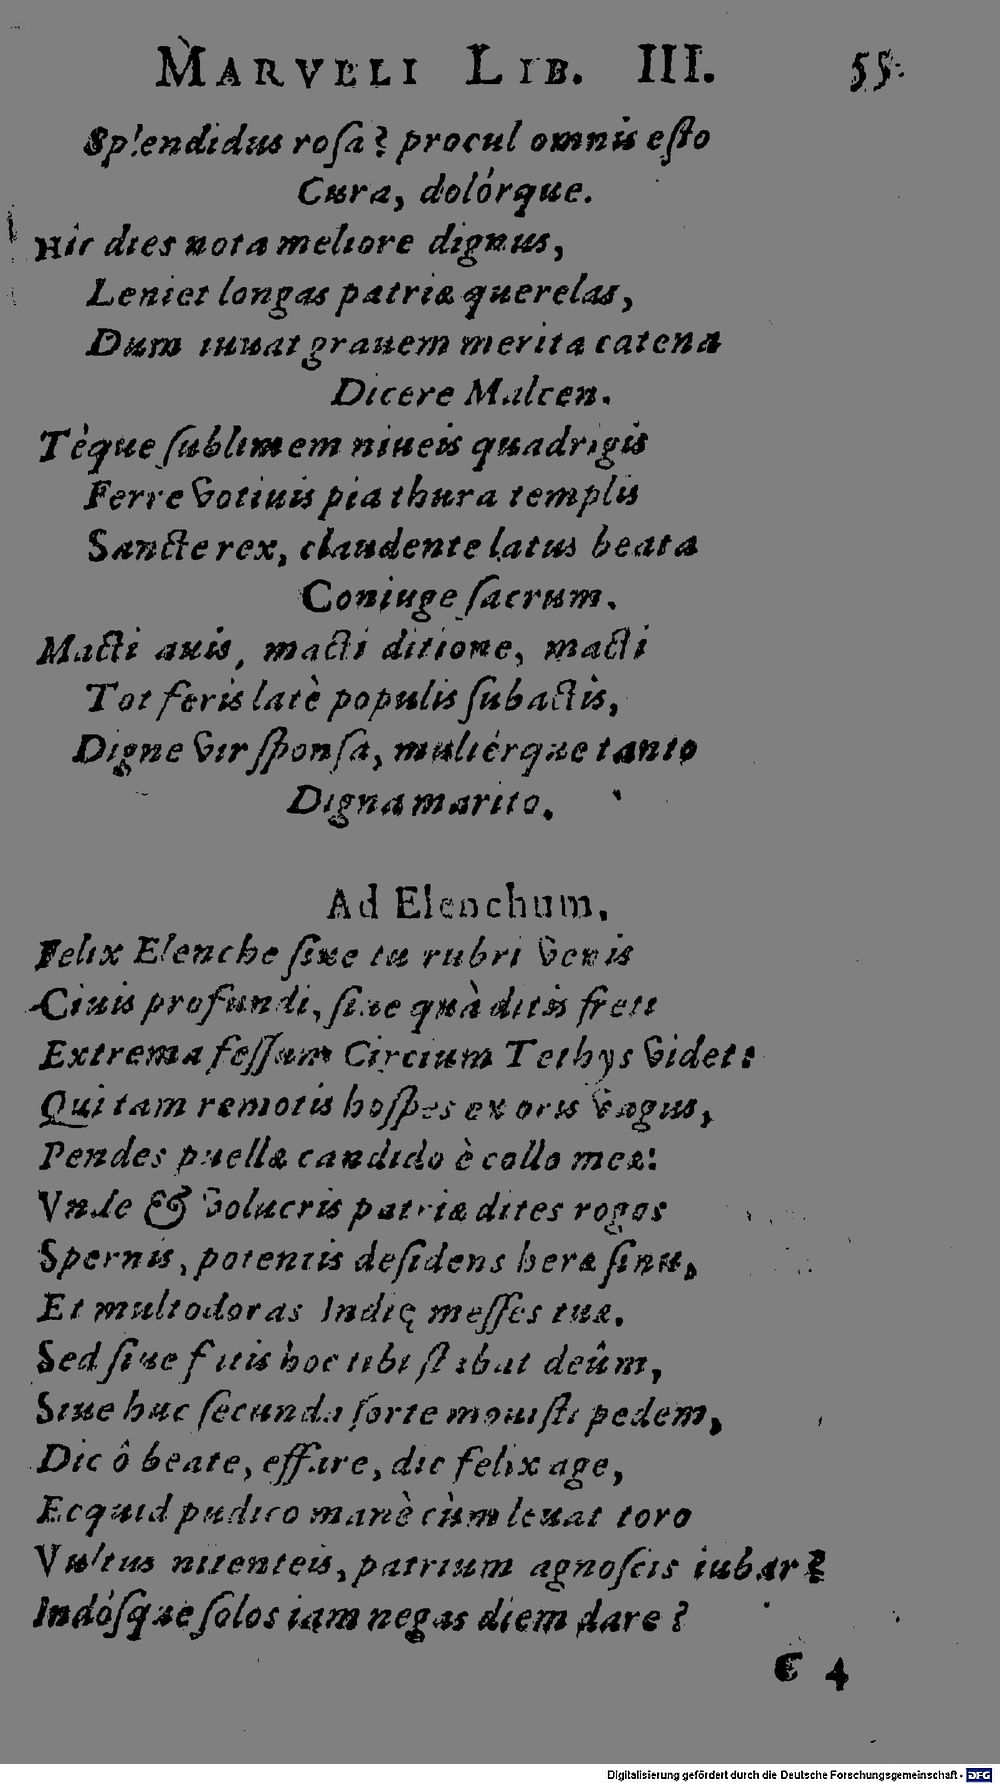 MARVELI LIB. III. 55.
Splendidus rosa? procul omnis esto
Cura, dolórque.
Hic dies nota meliore dignus,
Leniet longas patriæ querelas,
Dum iuuat grauem merita catena
Dicere Malcen.
Tèque sublimem niueis quadrigis
Ferre votiuis pia thura templis
Sancte rex, claudente latus beata
Coniuge sacrum.
Macti auis, macti ditione, macti
Tot feris latè populis subactis,
Digne vir sponsa, muliérque tanto
Digna marito.
Ad Elenchum.
Felix Elenche siue tu rubri venis
Ciuis profundi, siue quà ditis freti
Extrema fessum Circium Tethys videt:
Qui tam remotis hospes ex oris vagus,
Pendes puellæ candido è collo meæ:
Vnde & volucris patriæ dites rogos
Spernis, potentis desidens heræ sinu,
Et multodoras Indię messes tuæ.
Sed siue fatis hoc tibi stabat deûm,
Siue huc secunda sorte mouisti pedem,
Dic ô beate, effare, dic felix age,
Ecquid pudico manè cùm leuat toro
Vultus nitenteis, patrium agnoscis iubar?
Indósque solos iam negas diem dare?
e 4
Digitalisierung gefördert durch die Deutsche Forschungsgemeinschaft - DFG